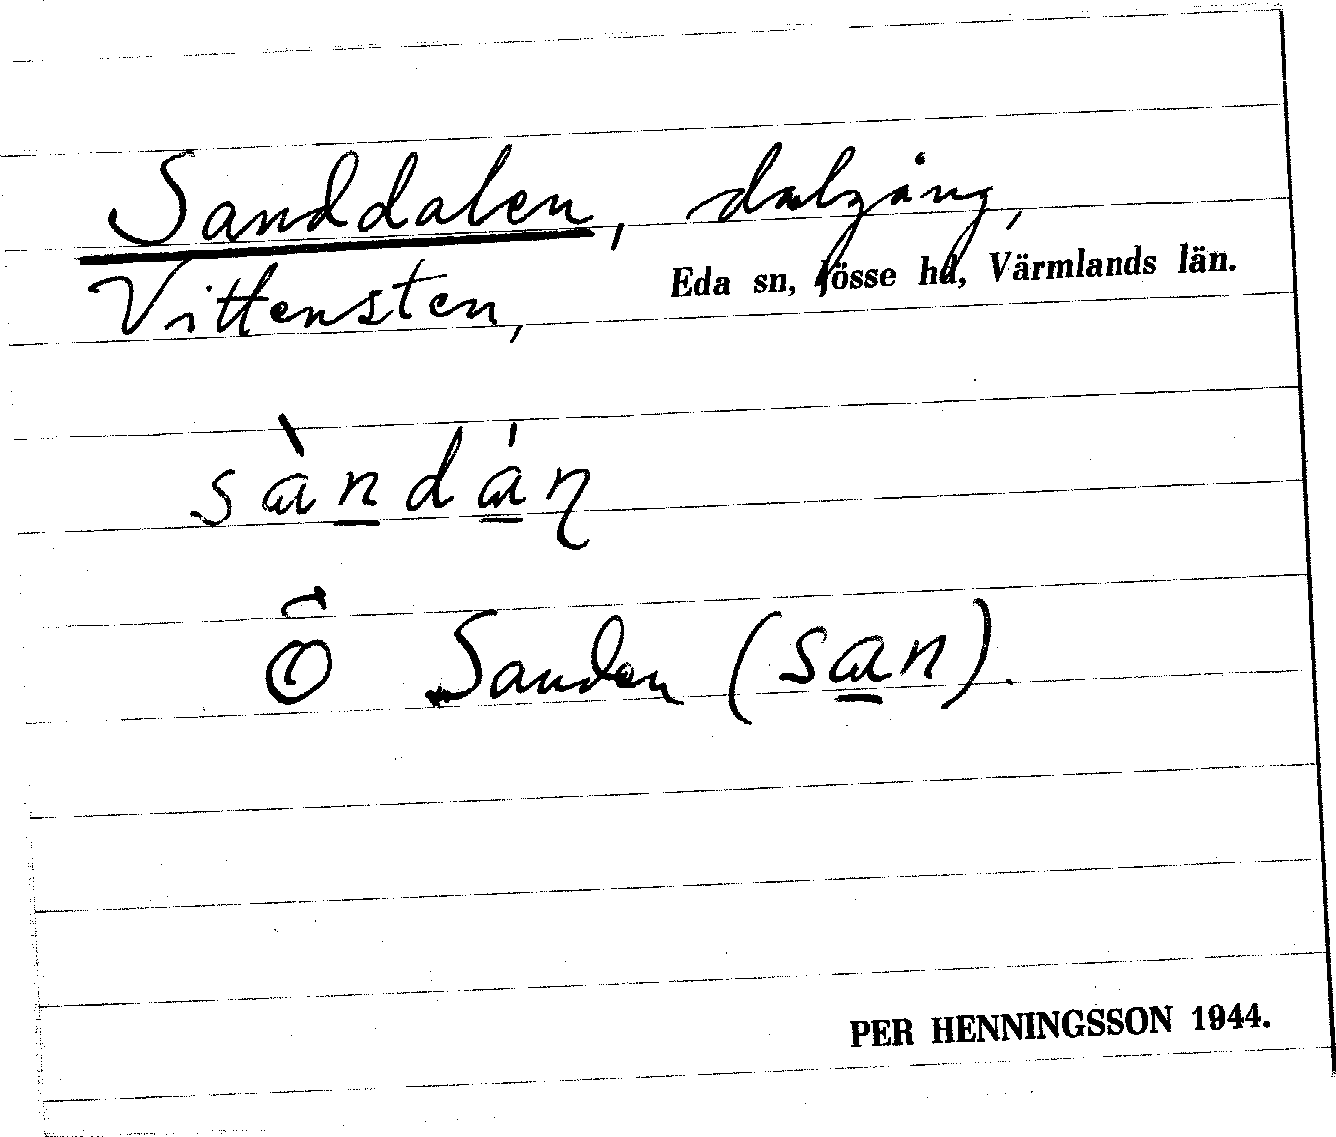 Sanddalen, dalgång,
Vittensten, Eda sn, Jösse hd, Värmlands län.
sàndáη
Ô Sanden (san).
PER HENNINGSSON 1944.